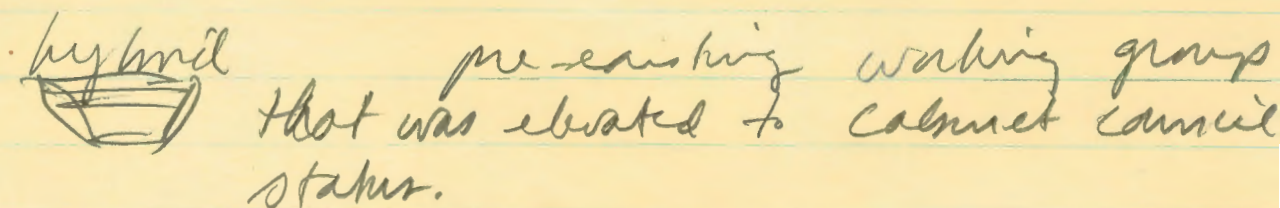 hybrid pre-existing working group
that was elevated to cabinet council
status.